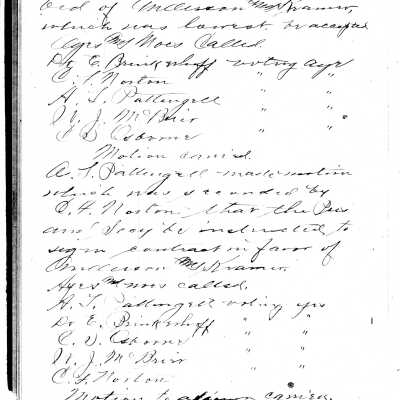 bid of Anderson & Kramer,
which was lowest be accepted
Ayes & Noes Called.
Dr E Brinkerhoff voting aye
C. F. Norton " "
H. S. Pattingell " "
N. J. McBrier " "
C D Osborne " "
Motion carried.
H. S. Pattingell made motion
which was seconded by
C. F. Norton that the Pres
and Secy be instructed to
sign contract in favor of
Anderson & Kramer.
Ayes & noes called.
H. S. Pattingell voting yes
Dr E. Brinkerhoff " "
C. D. Osborne " "
N. J. McBrier " "
C F Norton " "
Motion to carried.